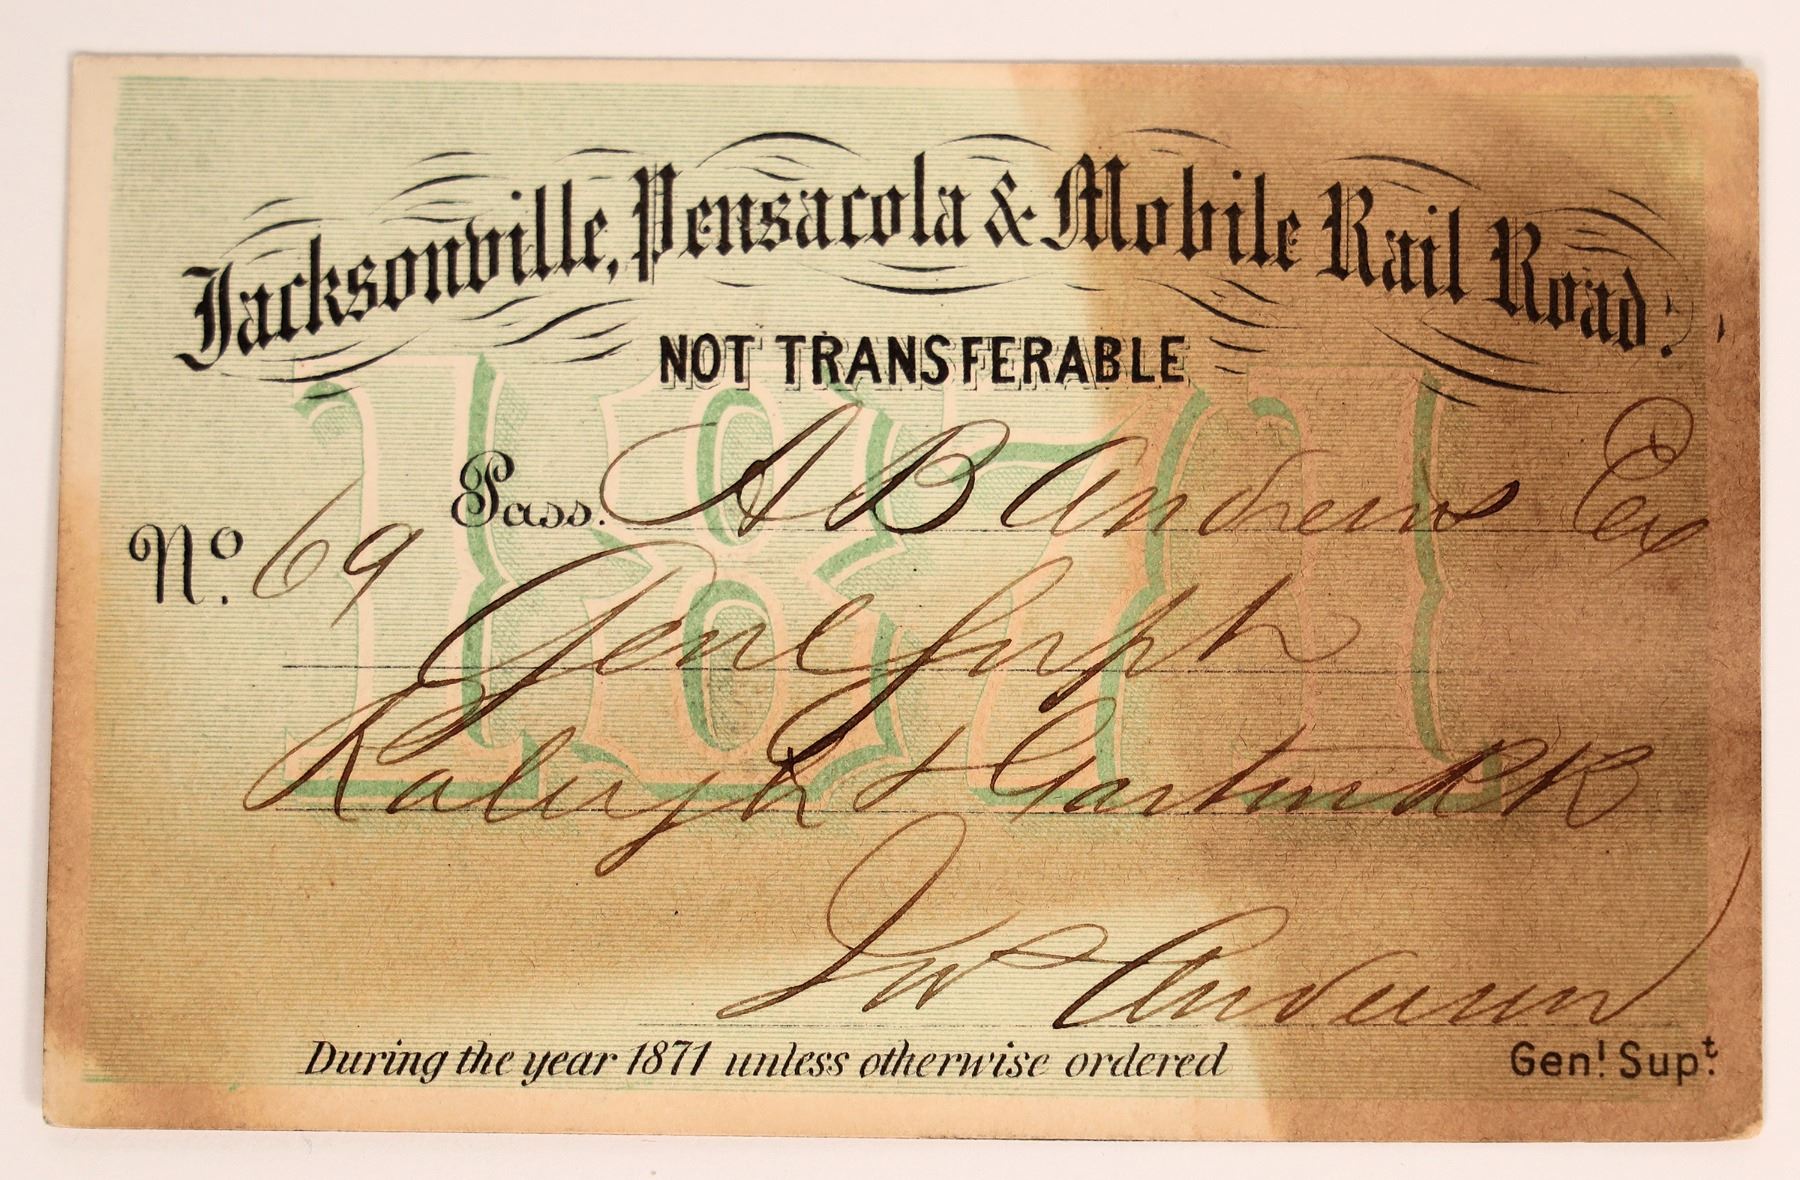 Jacksonville, Pensacola & Mobile Rail Road.
NOT TRANSFERABLE
1871
Pass. A B Andrews Esq
No. 69
Genl Supt
Raleigh & Gaston R R
Anderson
During the year 1871 unless otherwise ordered
Genl Supt